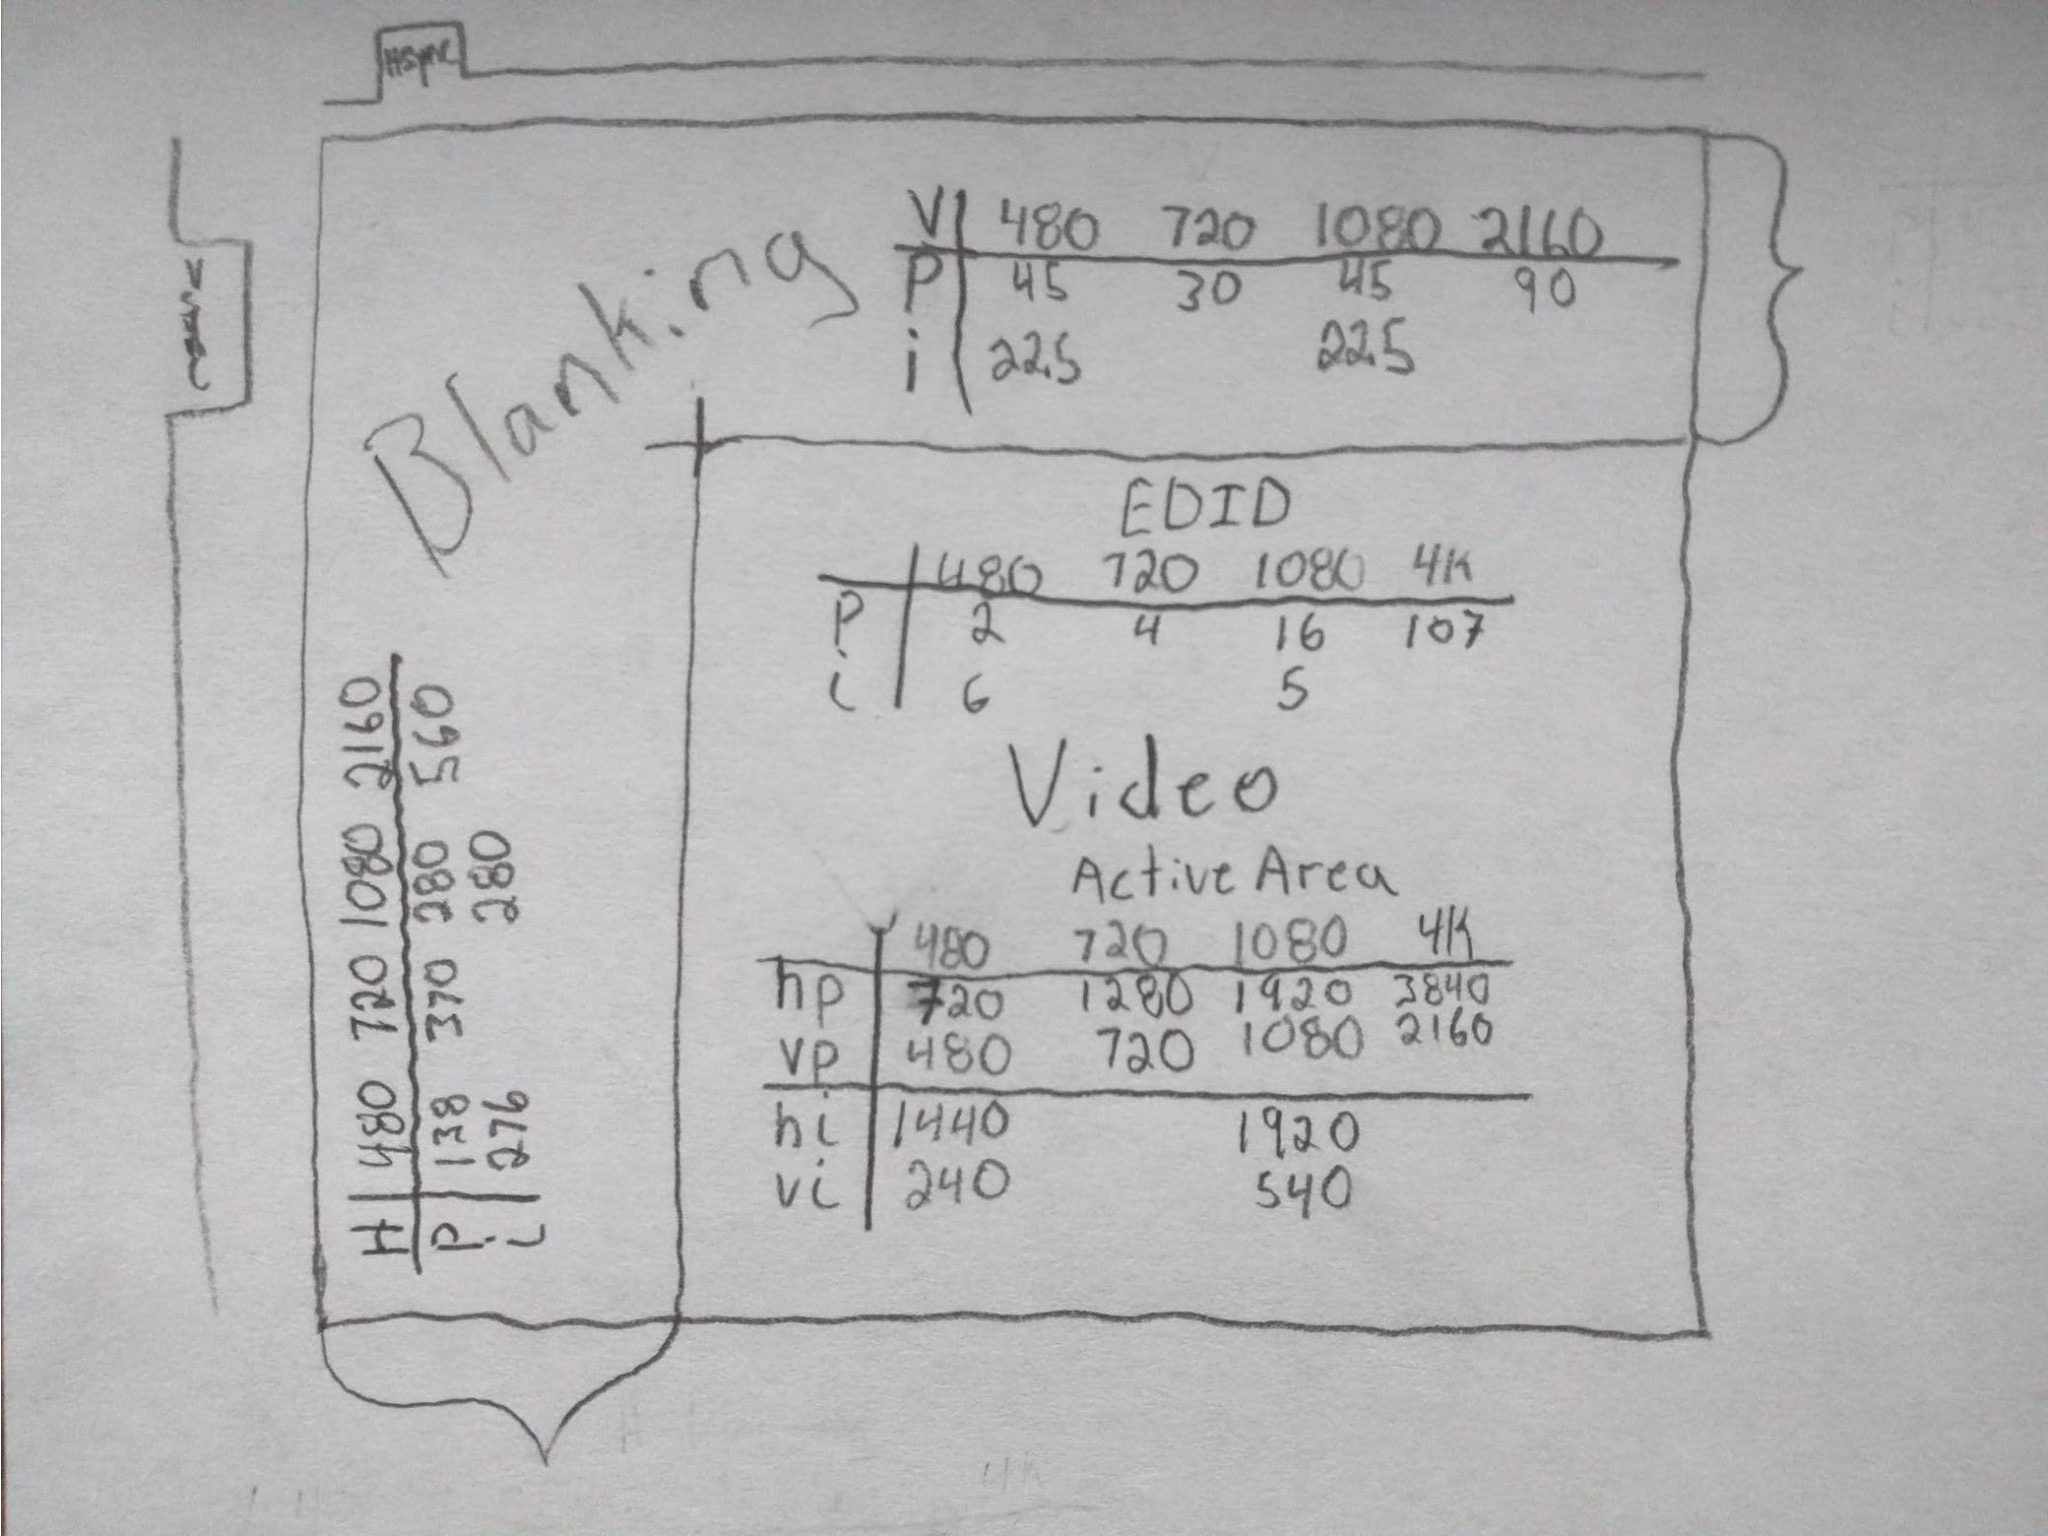 Hsync
Vsync
Blanking
V 480 720 1080 2160
P 45 30 45 90
i 22.5 22.5
EDID
480 720 1080 4K
P 2 4 16 107
i 6 5
Video
Active Area
480 720 1080 4K
hp 720 1280 1920 3840
vp 480 720 1080 2160
hi 1440 1920
vi 240 540
H 480 720 1080 2160
P 138 370 280 560
i 276 280